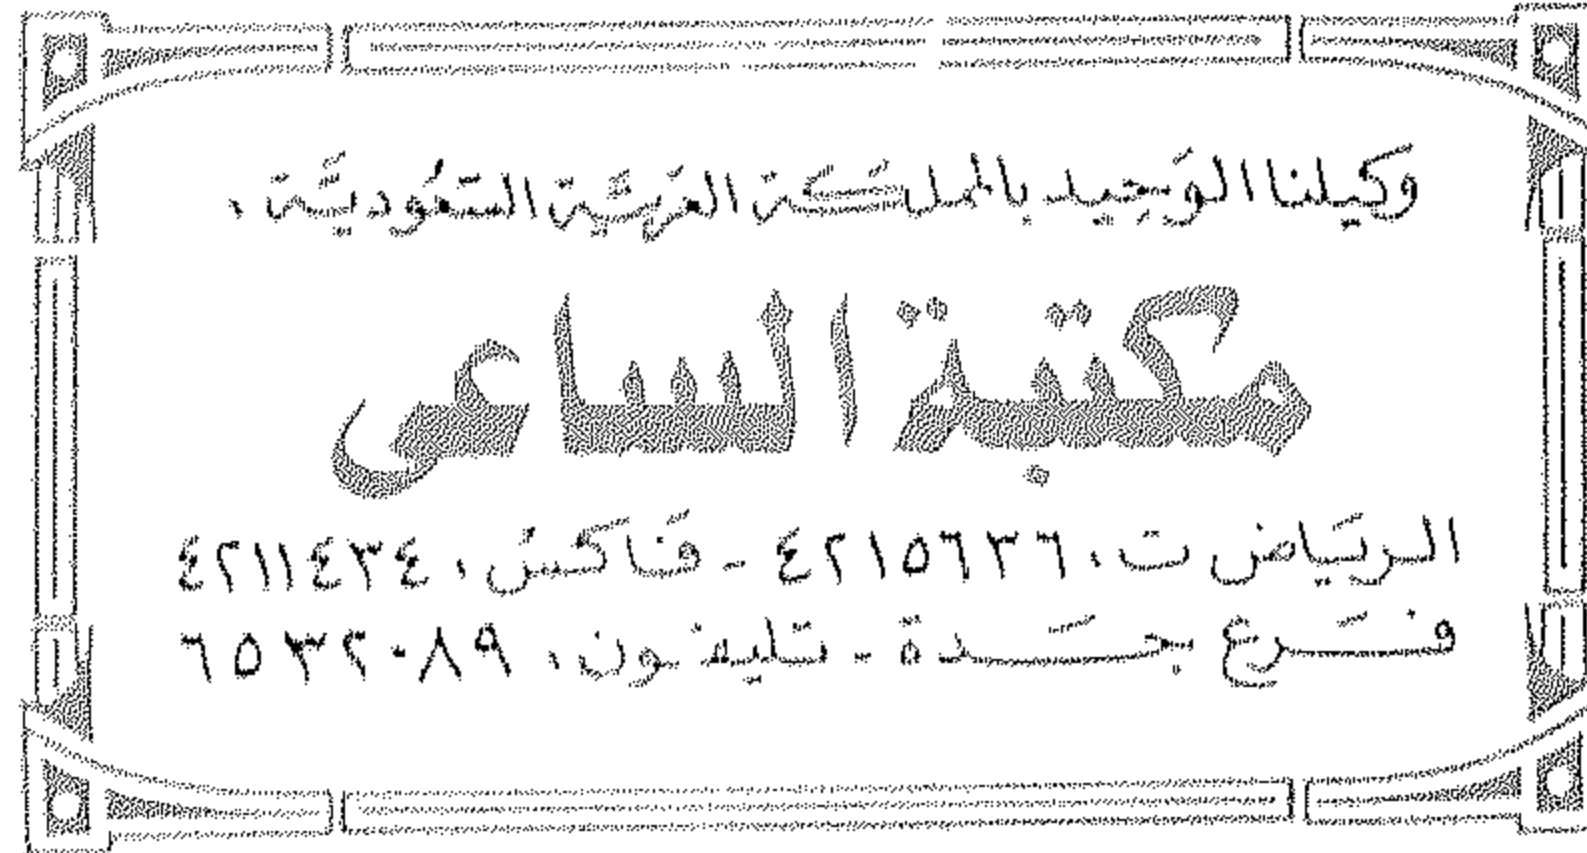 وكيلنا الوحيد بالمملكة العربية السعودية :
مكتبة الساعى
الرياض ت : ٤٢١٥٦٣٦ - فاكس : ٤٢١١٤٣٤
فرع جدة - تليفون : ٦٥٣٢٠٨٩